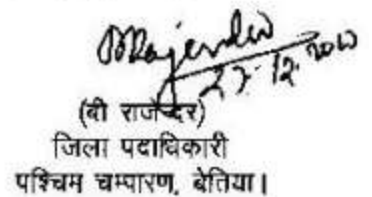 BRajender
27.12.2010
(बी राजेन्दर)
जिला पदाधिकारी
पश्चिम चम्पारण, बेतिया।